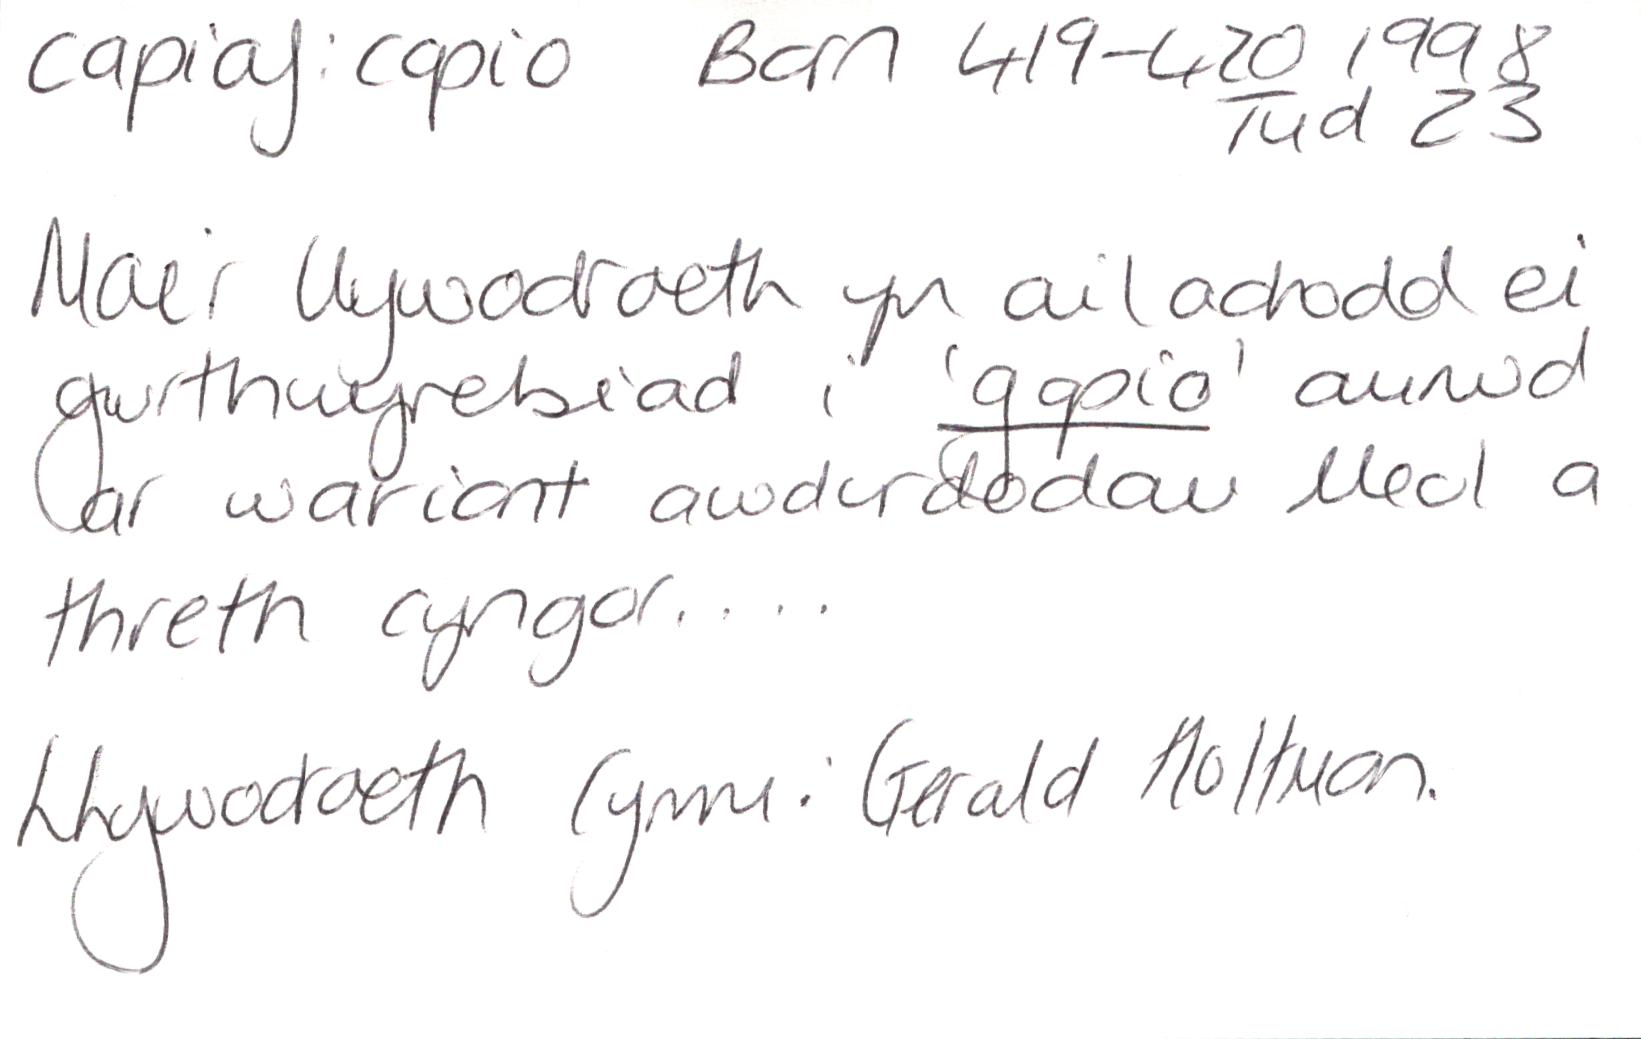 capiaf: capio Barn 419-420 1998
Tud 23
Mae'r llywodraeth yn ail adrodd ei
gwrthwynebiad i 'gapio' annwd
ar wariant awdurdodau lleol a
threth cyngor.....
Llywodraeth Cymru: Gerald Holtman.